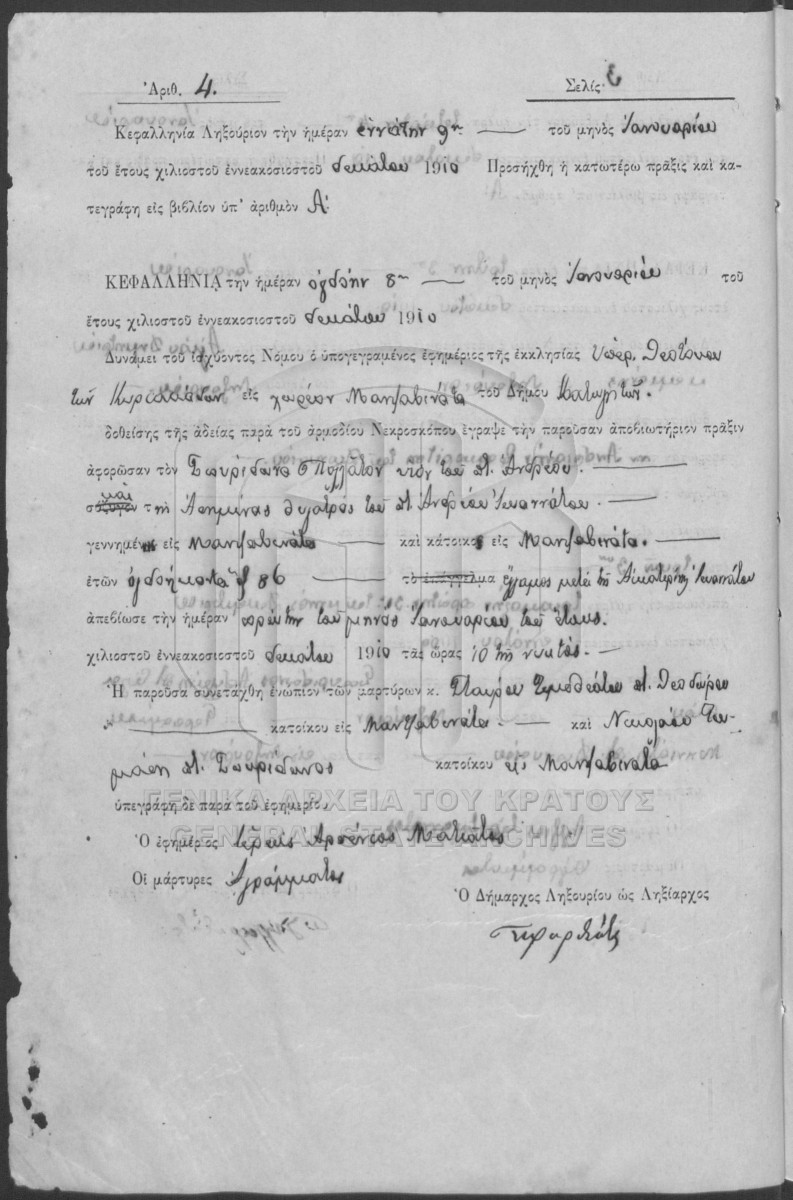 Ἀριθ. 4. Σελίς
Κεφαλληνία Ληξούριον τὴν ἡμέραν ἐννάτην 9ην τοῦ μηνὸς Ἰανουαρίου
τοῦ ἔτους χιλιοστοῦ ἐννεακοσιοστοῦ δεκάτου 1910 Προσήχθη ἡ κατωτέρω πρᾶξις καὶ κα-
τεγράφη εἰς βιβλίον ὑπ' ἀριθμὸν Α'
ΚΕΦΑΛΛΗΝΙΑ την ἡμέραν ὀγδόην 8ην τοῦ μηνὸς Ἰανουαρίου τοῦ
ἔτους χιλιοστοῦ ἐννεακοσιοστοῦ δεκάτου 1910
Δυνάμει τοῦ ἰσχύοντος Νόμου ὁ ὑπογεγραμένος ἐφημέριος τῆς ἐκκλησίας Ὑπερ. Δεσποίνου
τῶν εἰς χωρίον Μαντζαβινάτα τοῦ Δήμου Κατωγῆς
δοθείσης τῆς ἀδείας παρὰ τοῦ ἁρμοδίου Νεκροσκόπου ἔγραψε τὴν παροῦσαν ἀποβιωτήριον πρᾶξιν
ἀφορῶσαν τὸν Σπυρίδωνα υἱὸν τοῦ Ἀνδρέου.
σύζυγον καὶ τῆς Ἀσημίνας θυγατρὸς τοῦ Ἀνδρέου Ἰωαννάτου.
γεννημέν εἰς Μαντζαβινάτα καὶ κάτοικος εἰς Μαντζαβινάτα.
ἐτῶν ὀγδοήκοντα ἓξ 86 τὸ ἐπάγγελμα ἔγγαμος μετὰ τῆς Αἰκατερίνης Ἰωαννάτου
ἀπεβίωσε τὴν ἡμέραν πρώτην τοῦ μηνὸς Ἰανουαρίου τοῦ ἔτους.
χιλιοστοῦ ἐννεακοσιοστοῦ δεκάτου 1910 τὰς ὥρας 10 τῆς νυκτός.
Ἡ παροῦσα συνετάχθη ἐνώπιον τῶν μαρτύρων κ. Σταύρου Τιμοθεάτου Θεοδώρου
κατοίκου εἰς Μαντζαβινάτα. καὶ Νικολάου
Σπυρίδωνος κατοίκου εἰς Μαντζαβινάτα
ὑπεγράφη δὲ παρὰ τοῦ ἐφημερίου.
ΓΕΝΙΚΑ ΑΡΧΕΙΑ ΤΟΥ ΚΡΑΤΟΥΣ
GENERAL STATE ARCHIVES
Ὁ ἐφημέριος ἱερεὺς Ἀρσένιος
Οἱ μάρτυρες Ἀγράμματοι
Ὁ Δήμαρχος Ληξουρίου ὡς Ληξίαρχος